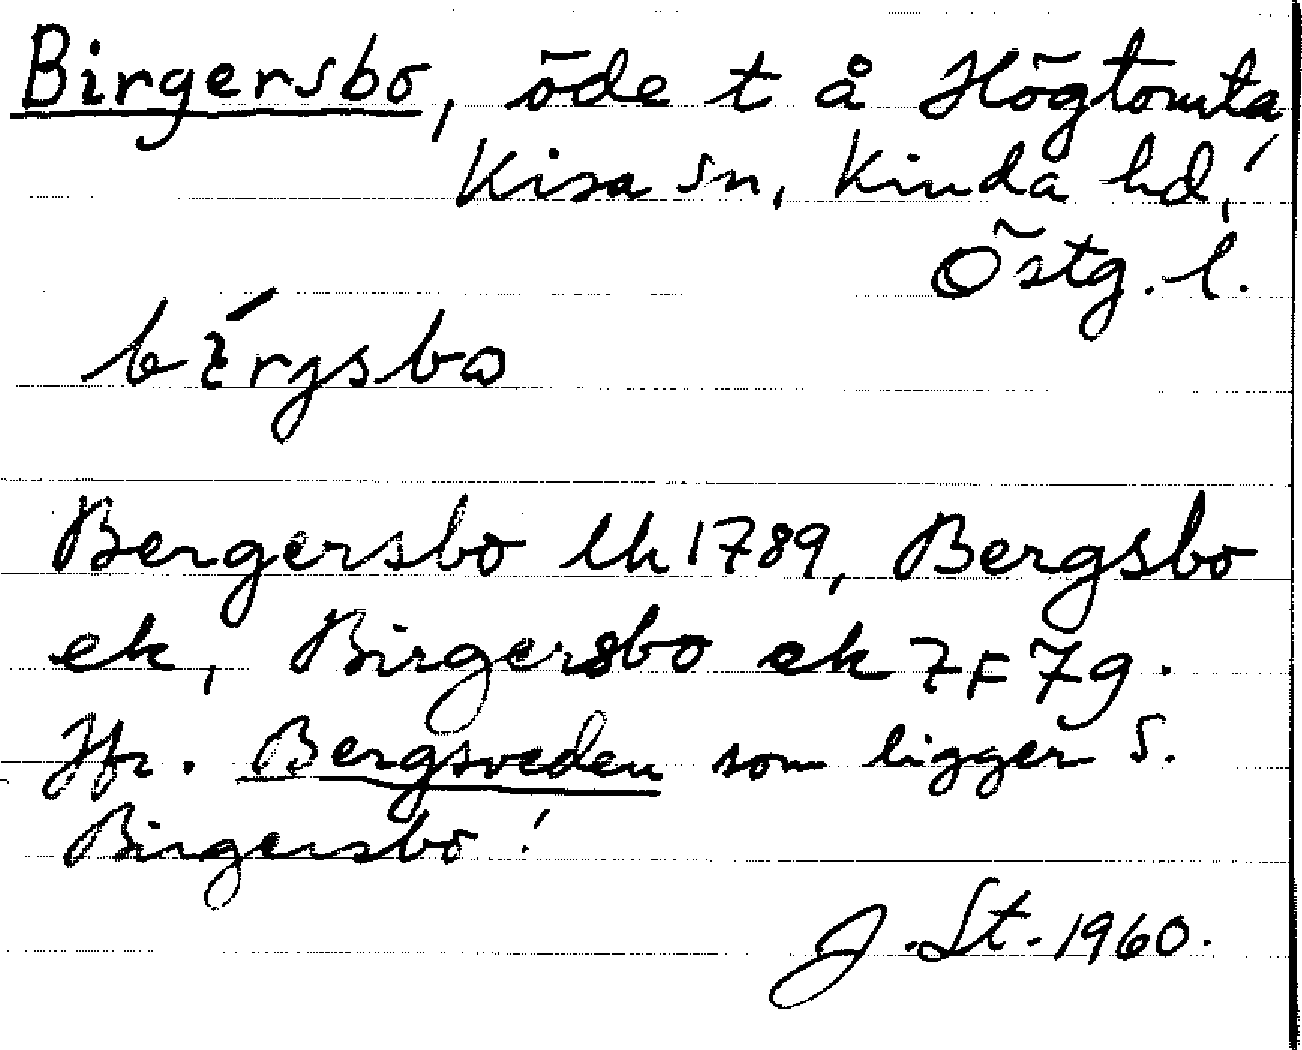 Birgersbo, öde t å Högtomta,
Kisa sn, Kinda hd,
Östg. l.
bírgsbo
Bergersbo lh 1789, Bergsbo
ek, Birgersbo ek 7F7g.
Jfr. Bergsveden som ligger S.
Birgersbo!
J. St. 1960.